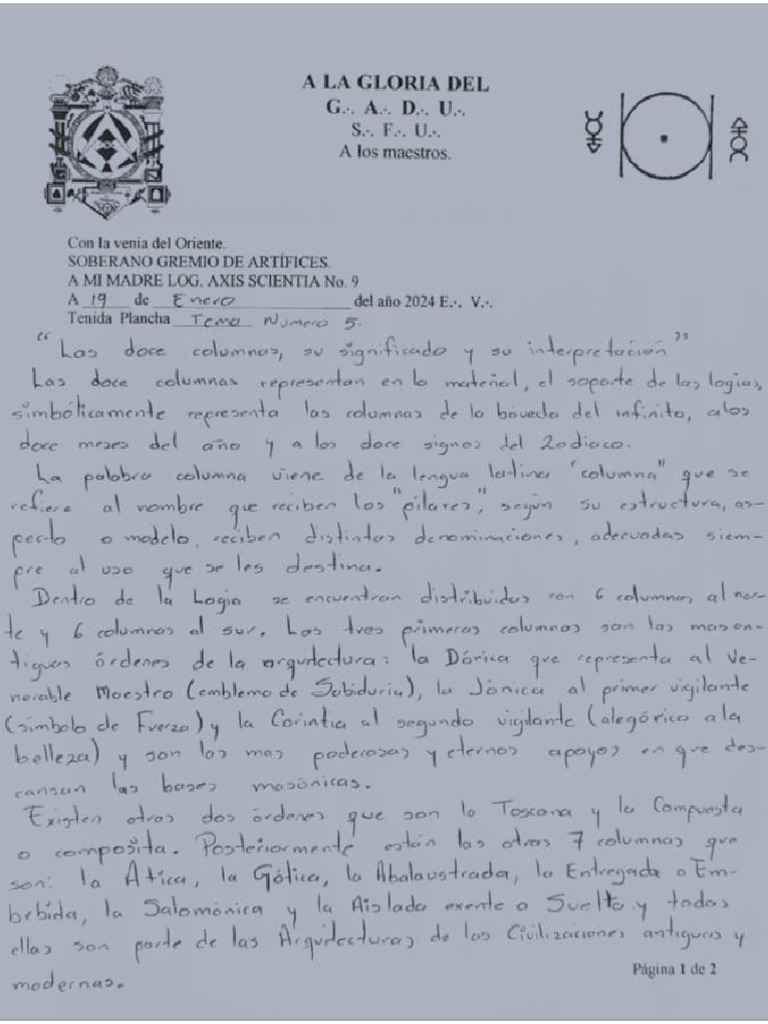 A LA GLORIA DEL
G∴ A∴ D∴ U∴
S∴ F∴ U∴
A los maestros.
Con la venia del Oriente.
SOBERANO GREMIO DE ARTÍFICES.
A MI MADRE LOG. AXIS SCIENTIA No. 9
A 19 de Enero del año 2024 E∴ V∴
Tenida Plancha Tema Numero 5.
"Las doce columnas, su significado y su interpretación"
Las doce columnas representan en lo material, el soporte de las logias,
simbólicamente representa las columnas de la bóveda del infinito, a los
doce meses del año y a los doce signos del Zodiaco.
La palabra columna viene de la lengua latina "columna" que se
refiere al nombre que reciben los "pilares", según su estructura, as-
pecto o modelo, reciben distintas denominaciones, adecuadas siem-
pre al uso que se les destina.
Dentro de la Logia se encuentran distribuidas con 6 columnas al nor-
te y 6 columnas al sur. Las tres primeras columnas son las mas an-
tiguas órdenes de la arquitectura: la Dórica que representa al Ve-
nerable Maestro (emblema de Sabiduria), la Jónica al primer vigilante
(símbolo de Fuerza) y la Corintia al segundo vigilante (alegórico a la
belleza) y son los mas poderosas y eternos apoyos en que des-
cansan las bases masónicas.
Existen otros dos órdenes que son la Toscana y la Compuesta
o composita. Posteriormente están las otras 7 columnas que
son: la Atica, la Gótica, la Abalaustrada, la Entregada o Em-
bebida, la Salomónica y la Aislada exente o Suelta y todas
ellas son parte de las Arquitecturas de las Civilizaciones antiguas y
modernas.
Página 1 de 2